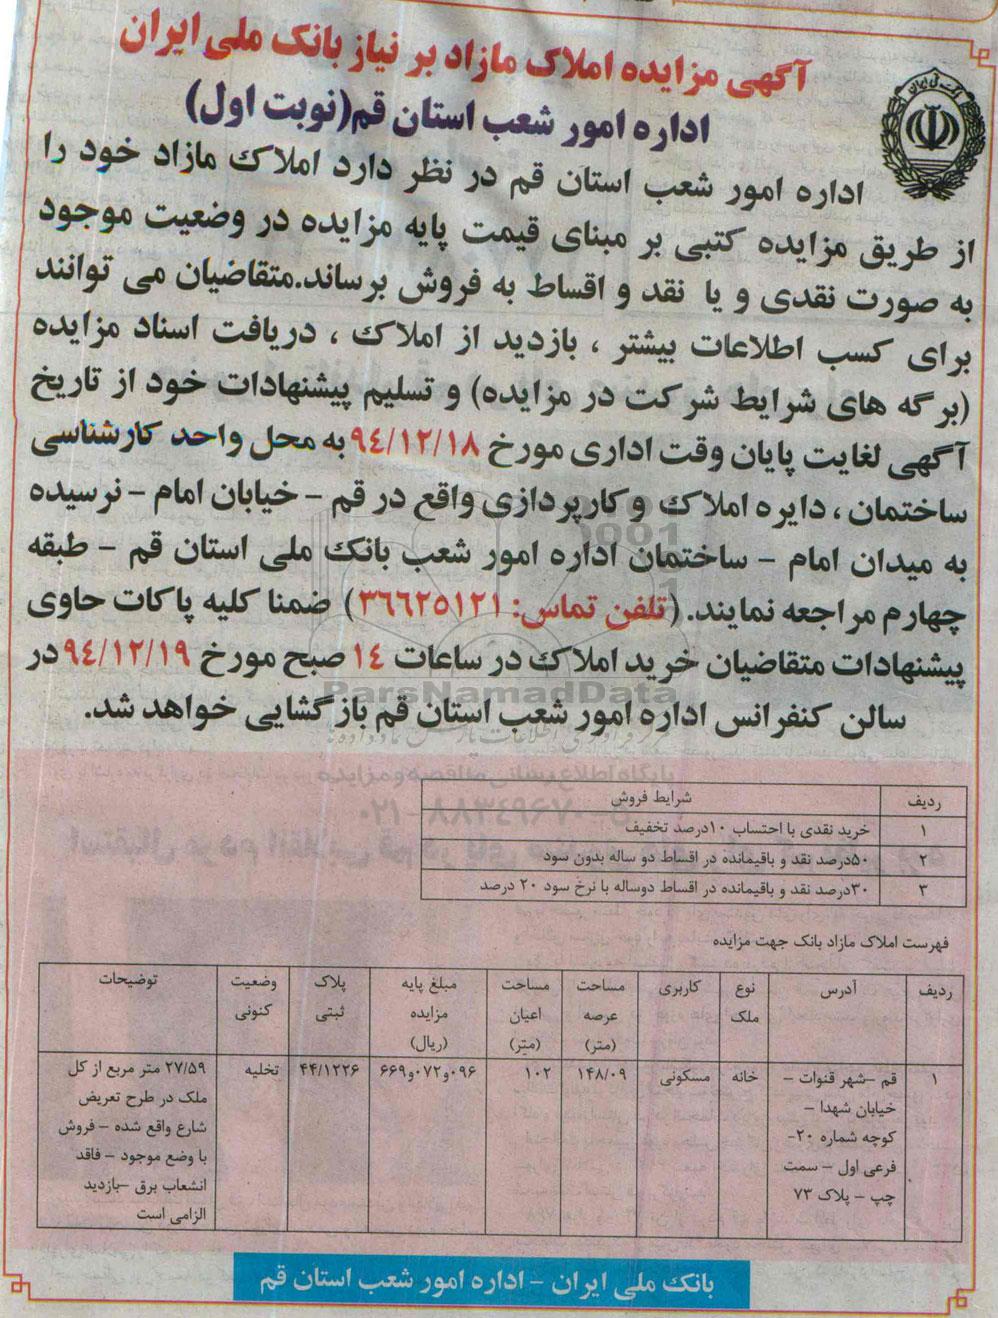 آگهی مزایده املاک مازاد بر نیاز بانک ملی ایران
اداره امور شعب استان قم(نوبت اول)
اداره امور شعب استان قم در نظر دارد املاک مازاد خود را
از طریق مزایده کتبی بر مبنای قیمت پایه مزایده در وضعیت موجود
به صورت نقدی و یا نقد و اقساط به فروش برساند.متقاضیان می توانند
برای کسب اطلاعات بیشتر ، بازدید از املاک ، دریافت اسناد مزایده
(برگه های شرایط شرکت در مزایده) و تسلیم پیشنهادات خود از تاریخ
آگهی لغایت پایان وقت اداری مورخ ۹٤/۱۲/۱۸ به محل واحد کارشناسی
ساختمان ، دایره املاک و کارپردازی واقع در قم - خیابان امام - نرسیده
به میدان امام - ساختمان اداره امور شعب بانک ملی استان قم - طبقه
چهارم مراجعه نمایند. (تلفن تماس: ۳٦٦۲٥۱۲۱) ضمنا کلیه پاکات حاوی
پیشنهادات متقاضیان خرید املاک در ساعات ۱٤ صبح مورخ ۹٤/۱۲/۱۹ در
سالن کنفرانس اداره امور شعب استان قم بازگشایی خواهد شد.
ParsNamadData
ردیف شرایط فروش
۱ خرید نقدی با احتساب ۱۰درصد تخفیف
۲ ۵۰درصد نقد و باقیمانده در اقساط دو ساله بدون سود
۳ ۳۰درصد نقد و باقیمانده در اقساط دوساله با نرخ سود ۲۰ درصد
فهرست املاک مازاد بانک جهت مزایده
ردیف آدرس نوع ملک کاربری مساحت عرصه (متر) مساحت اعیان (متر) مبلغ پایه مزایده (ریال) پلاک ثبتی وضعیت کنونی توضیحات
۱ قم –شهر قنوات –
خیابان شهدا –
کوچه شماره ۲۰-
فرعی اول – سمت
چپ – پلاک ۷۳
خانه مسکونی ۱۴۸/۰۹ ۱۰۲ ۶۶۹و۰۷۲و۰۹۶ ۴۴/۱۲۲۶ تخلیه
۲۷/۵۹ متر مربع از کل
ملک در طرح تعریض
شارع واقع شده – فروش
با وضع موجود – فاقد
انشعاب برق –بازدید
الزامی است
بانک ملی ایران - اداره امور شعب استان قم